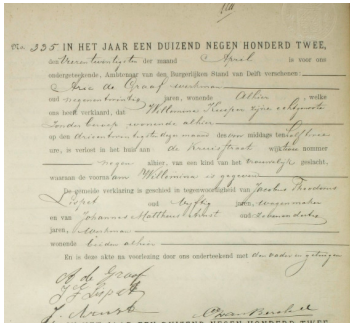 No. 335 IN HET JAAR EEN DUIZEND NEGEN HONDERD TWEE,
den vierentwintigsten der maand April is voor ons
ondergeteekende, Ambtenaar van den Burgerlijken Stand van Delft verschenen:
Arie de Graaf werkman
oud negenentwintig jaren, wonende Alhier, welke
ons heeft verklaard, dat Willemina Knaper zijne echtgenoote
zonder beroep wonende alhier
op den drieentwintigsten dezer des middags ten half twee
ure, is verlost in het huis aan de Kruisstraat wijk nummer
negen alhier, van een kind van het vrouwelijk geslacht,
waaraan de voornaam Willemina is gegeven
De gemelde verklaring is geschied in tegenwoordigheid van Jacobus Theodorus
Lispet oud vijftig jaren, wagenmaker
en van Johannes Mattheus oud
jaren, werkman
wonende beiden alhier
En is deze akte na voorlezing door ons onderteekend met den vader en getuigen
A de Graaf
J T Lispet